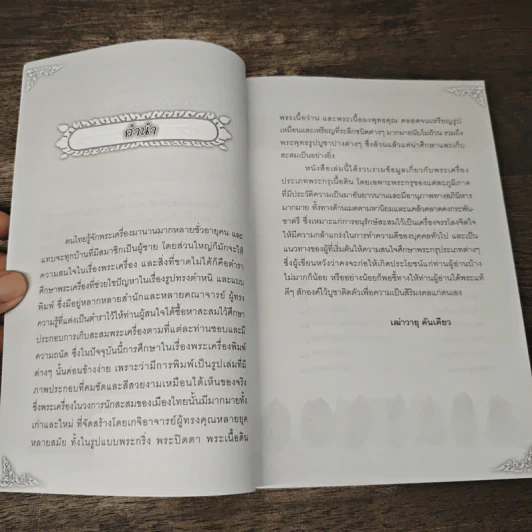 คำนำ
คนไทยรู้จักพระเครื่องมานานมากหลายชั่วอายุคน และ
แทบจะทุกบ้านที่มีสมาชิกเป็นผู้ชาย โดยส่วนใหญ่ก็มักจะให้
ความสนใจในเรื่องพระเครื่อง และสิ่งที่ขาดไม่ได้ก็คือตำรา
ศึกษาพระเครื่องที่ช่วยไขปัญหาในเรื่องรูปทรงตำหนิ และแบบ
พิมพ์ ซึ่งมีอยู่หลากหลายสำนักและหลายคณาจารย์ ผู้ทรง
ความรู้ที่แต่งเป็นตำราไว้ให้ท่านผู้สนใจได้ซื้อหาสะสมไว้ศึกษา
ประกอบการเก็บสะสมพระเครื่องตามที่แต่ละท่านชอบและมี
ความถนัด ซึ่งในปัจจุบันนี้การศึกษาในเรื่องพระเครื่องพิมพ์
ต่างๆ นั้นค่อนข้างง่าย เพราะว่ามีการพิมพ์เป็นรูปเล่มที่มี
ภาพประกอบที่คมชัดและสีสวยงามเหมือนได้เห็นของจริง
ซึ่งพระเครื่องในวงการนักสะสมของเมืองไทยนั้นมีมากมายทั้ง
เก่าและใหม่ ที่จัดสร้างโดยเกจิอาจารย์ผู้ทรงคุณหลายยุค
หลายสมัย ทั้งในรูปแบบพระกริ่ง พระปิดตา พระเนื้อดิน
พระเนื้อว่าน และพระเนื้อผงพุทธคุณ ตลอดจนเหรียญรูป
เหมือนและเหรียญที่ระลึกชนิดต่างๆ มากมายนับไม่ถ้วน รวมถึง
พระพุทธรูปบูชาปางต่างๆ ซึ่งล้วนแล้วแต่น่าศึกษาและเก็บ
สะสมเป็นอย่างยิ่ง
หนังสือเล่มนี้ได้รวบรวมข้อมูลเกี่ยวกับพระเครื่อง
ประเภทพระกรุเนื้อดิน โดยเฉพาะพระกรุของแต่ละภูมิภาค
ที่มีประวัติความเป็นมาอันยาวนานและมีอานุภาพทางอภินิหาร
มากมาย ทั้งทางด้านเมตตามหานิยมและแคล้วคลาดคงกระพัน-
ชาตรี ซึ่งเหมาะแก่การอนุรักษ์สะสมไว้เป็นเครื่องจรรโลงจิตใจ
ให้มีความกล้าแกร่งในการทำความดีของบุคคลทั่วไป และเป็น
แนวทางของผู้ที่เริ่มต้นให้ความสนใจศึกษาพระกรุประเภทต่างๆ
ซึ่งผู้เขียนหวังว่าคงจะก่อให้เกิดประโยชน์แก่ท่านผู้อ่านบ้าง
ไม่มากก็น้อย หรืออย่างน้อยก็พอชี้ทางให้ท่านผู้อ่านได้พระแท้
ดีๆ สักองค์ไว้บูชาติดตัวเพื่อความเป็นสิริมงคลแก่ตนเอง
เฒ่าวายุ คันเคียว